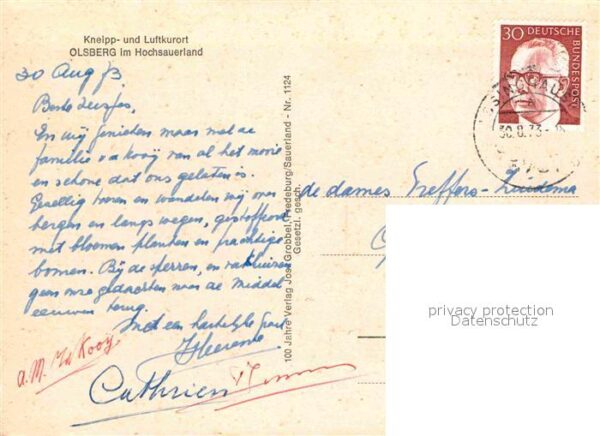 Kneipp- und Luftkurort
OLSBERG im Hochsauerland
30 Aug 73
Beste
En wij genieten maar met de
familie v.d. Kooij van al het mooie
en schone dat ons gelaten is.
Gezellig toeren en wandelen wij over
bergen en langs wegen, gestoffeerd
met bloemen planten en prachtige
bomen. Bij de sperren, en
gaan onze gedachten naar de Middel
eeuwen terug.
Met een hartelijke groet
Heerema
a. M. v.d. Kooy
Cathrien
100 Jahre Verlag Jos. Grobbel, Fredeburg/Sauerland - Nr. 1124
Gesetzl. gesch.
30 DEUTSCHE
BUNDESPOST
30.8.73
de dames Greffers - Zuidema
privacy protection
Datenschutz